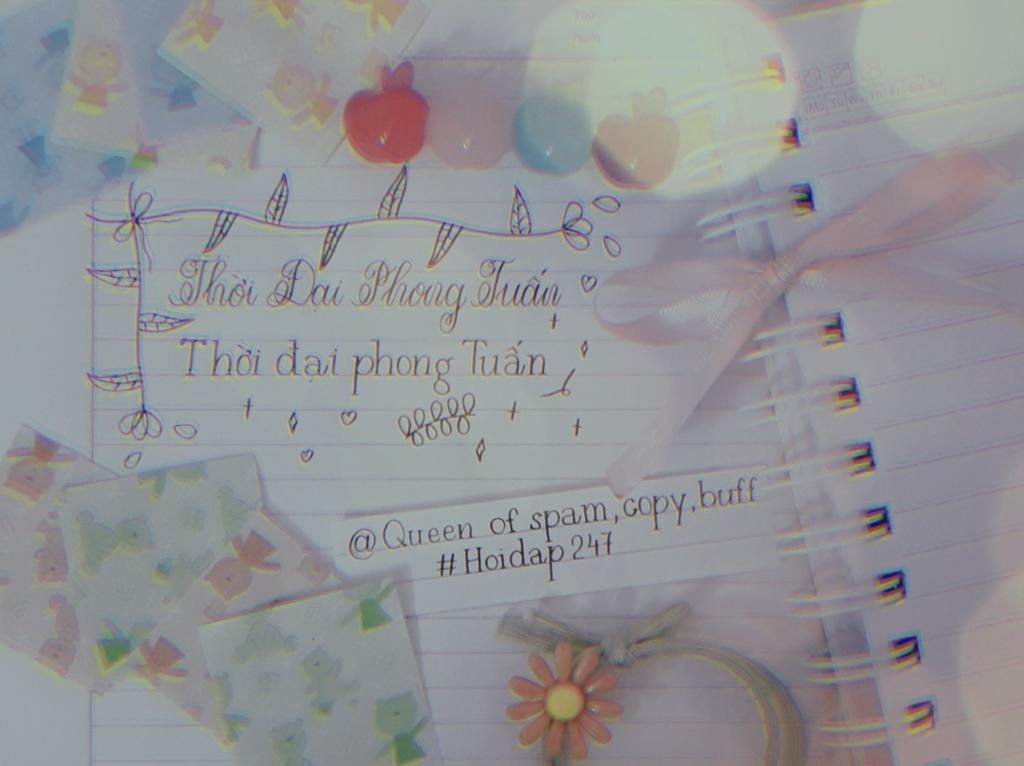 Thời Đại Phong Tuấn
Thời đại phong Tuấn
@Queen of spam, copy, buff
#Hoidap247
Mo Tu We Th Fr Sa Su